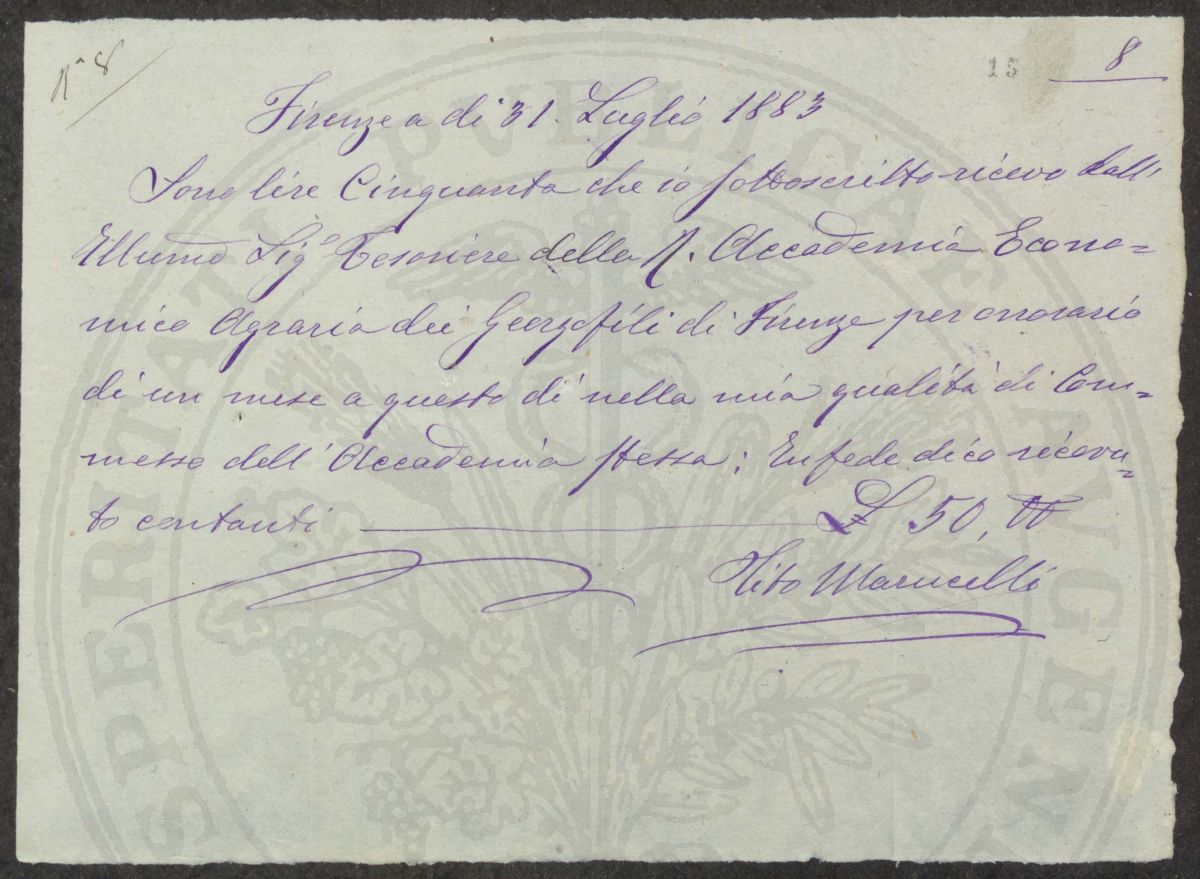 N° 8
15
8
Firenze a dì 31. Luglio 1883
Sono lire Cinquanta che io sottoscritto ricevo dall'
Illumo Sigr Tesoriere della R. Accademia Econo=
mico Agraria dei Georgofili di Firenze per onorario
di un mese a questo dì nella mia qualità di Com=
messo dell'Accademia stessa; En fede dico ricevu=
to contanti £ 50, 00
Tito Marucelli
PROSPERITATI PVBLICAE AVGEN